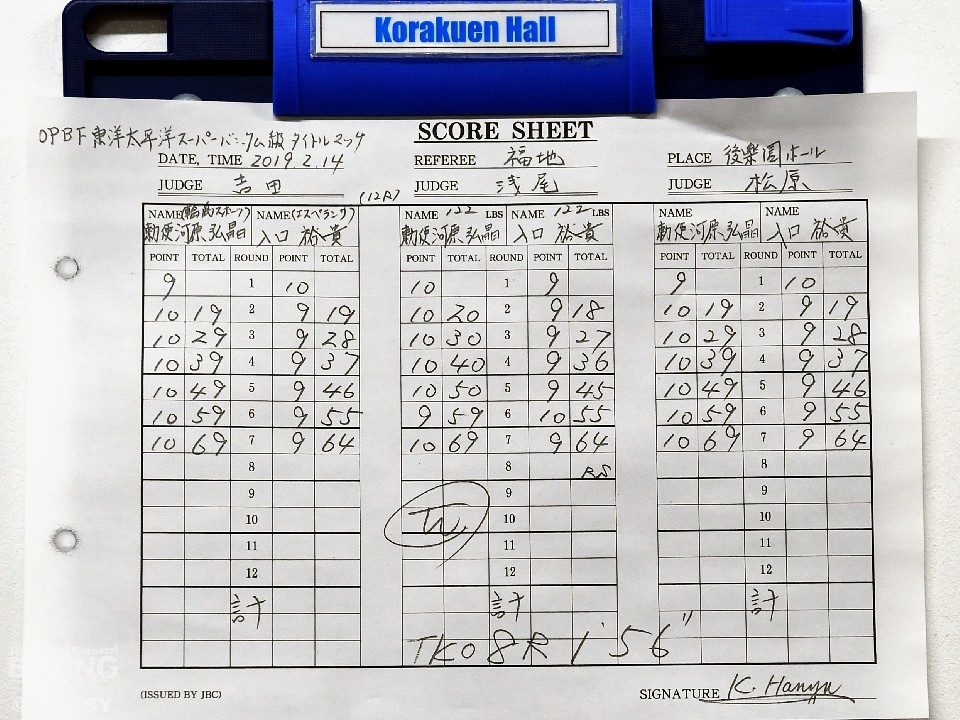 Korakuen Hall
OPBF東洋太平洋スーパーバンタム級タイトルマッチ
SCORE SHEET
DATE, TIME 2019.2.14 REFEREE 福地 PLACE 後楽園ホール
JUDGE 吉田 (12R) JUDGE 浅尾 JUDGE 松原
NAME (輪島スポーツ) NAME (エスペランサ) NAME 122 LBS NAME 122 LBS NAME NAME
勅使河原弘晶 入口 裕貴 勅使河原弘晶 入口 裕貴 勅使河原弘晶 入口 裕貴
POINT TOTAL ROUND POINT TOTAL POINT TOTAL ROUND POINT TOTAL POINT TOTAL ROUND POINT TOTAL
9 1 10 10 1 9 9 1 10
10 19 2 9 19 10 20 2 9 18 10 19 2 9 19
10 29 3 9 28 10 30 3 9 27 10 29 3 9 28
10 39 4 9 37 10 40 4 9 36 10 39 4 9 37
10 49 5 9 46 10 50 5 9 45 10 49 5 9 46
10 59 6 9 55 9 59 6 10 55 10 59 6 9 55
10 69 7 9 64 10 69 7 9 64 10 69 7 9 64
8 8 RS 8
9 9 9
10 W. 10 10
11 11 11
12 12 12
計 計 計
TKO 8R 1'56"
(ISSUED BY JBC) SIGNATURE K. Hanyu